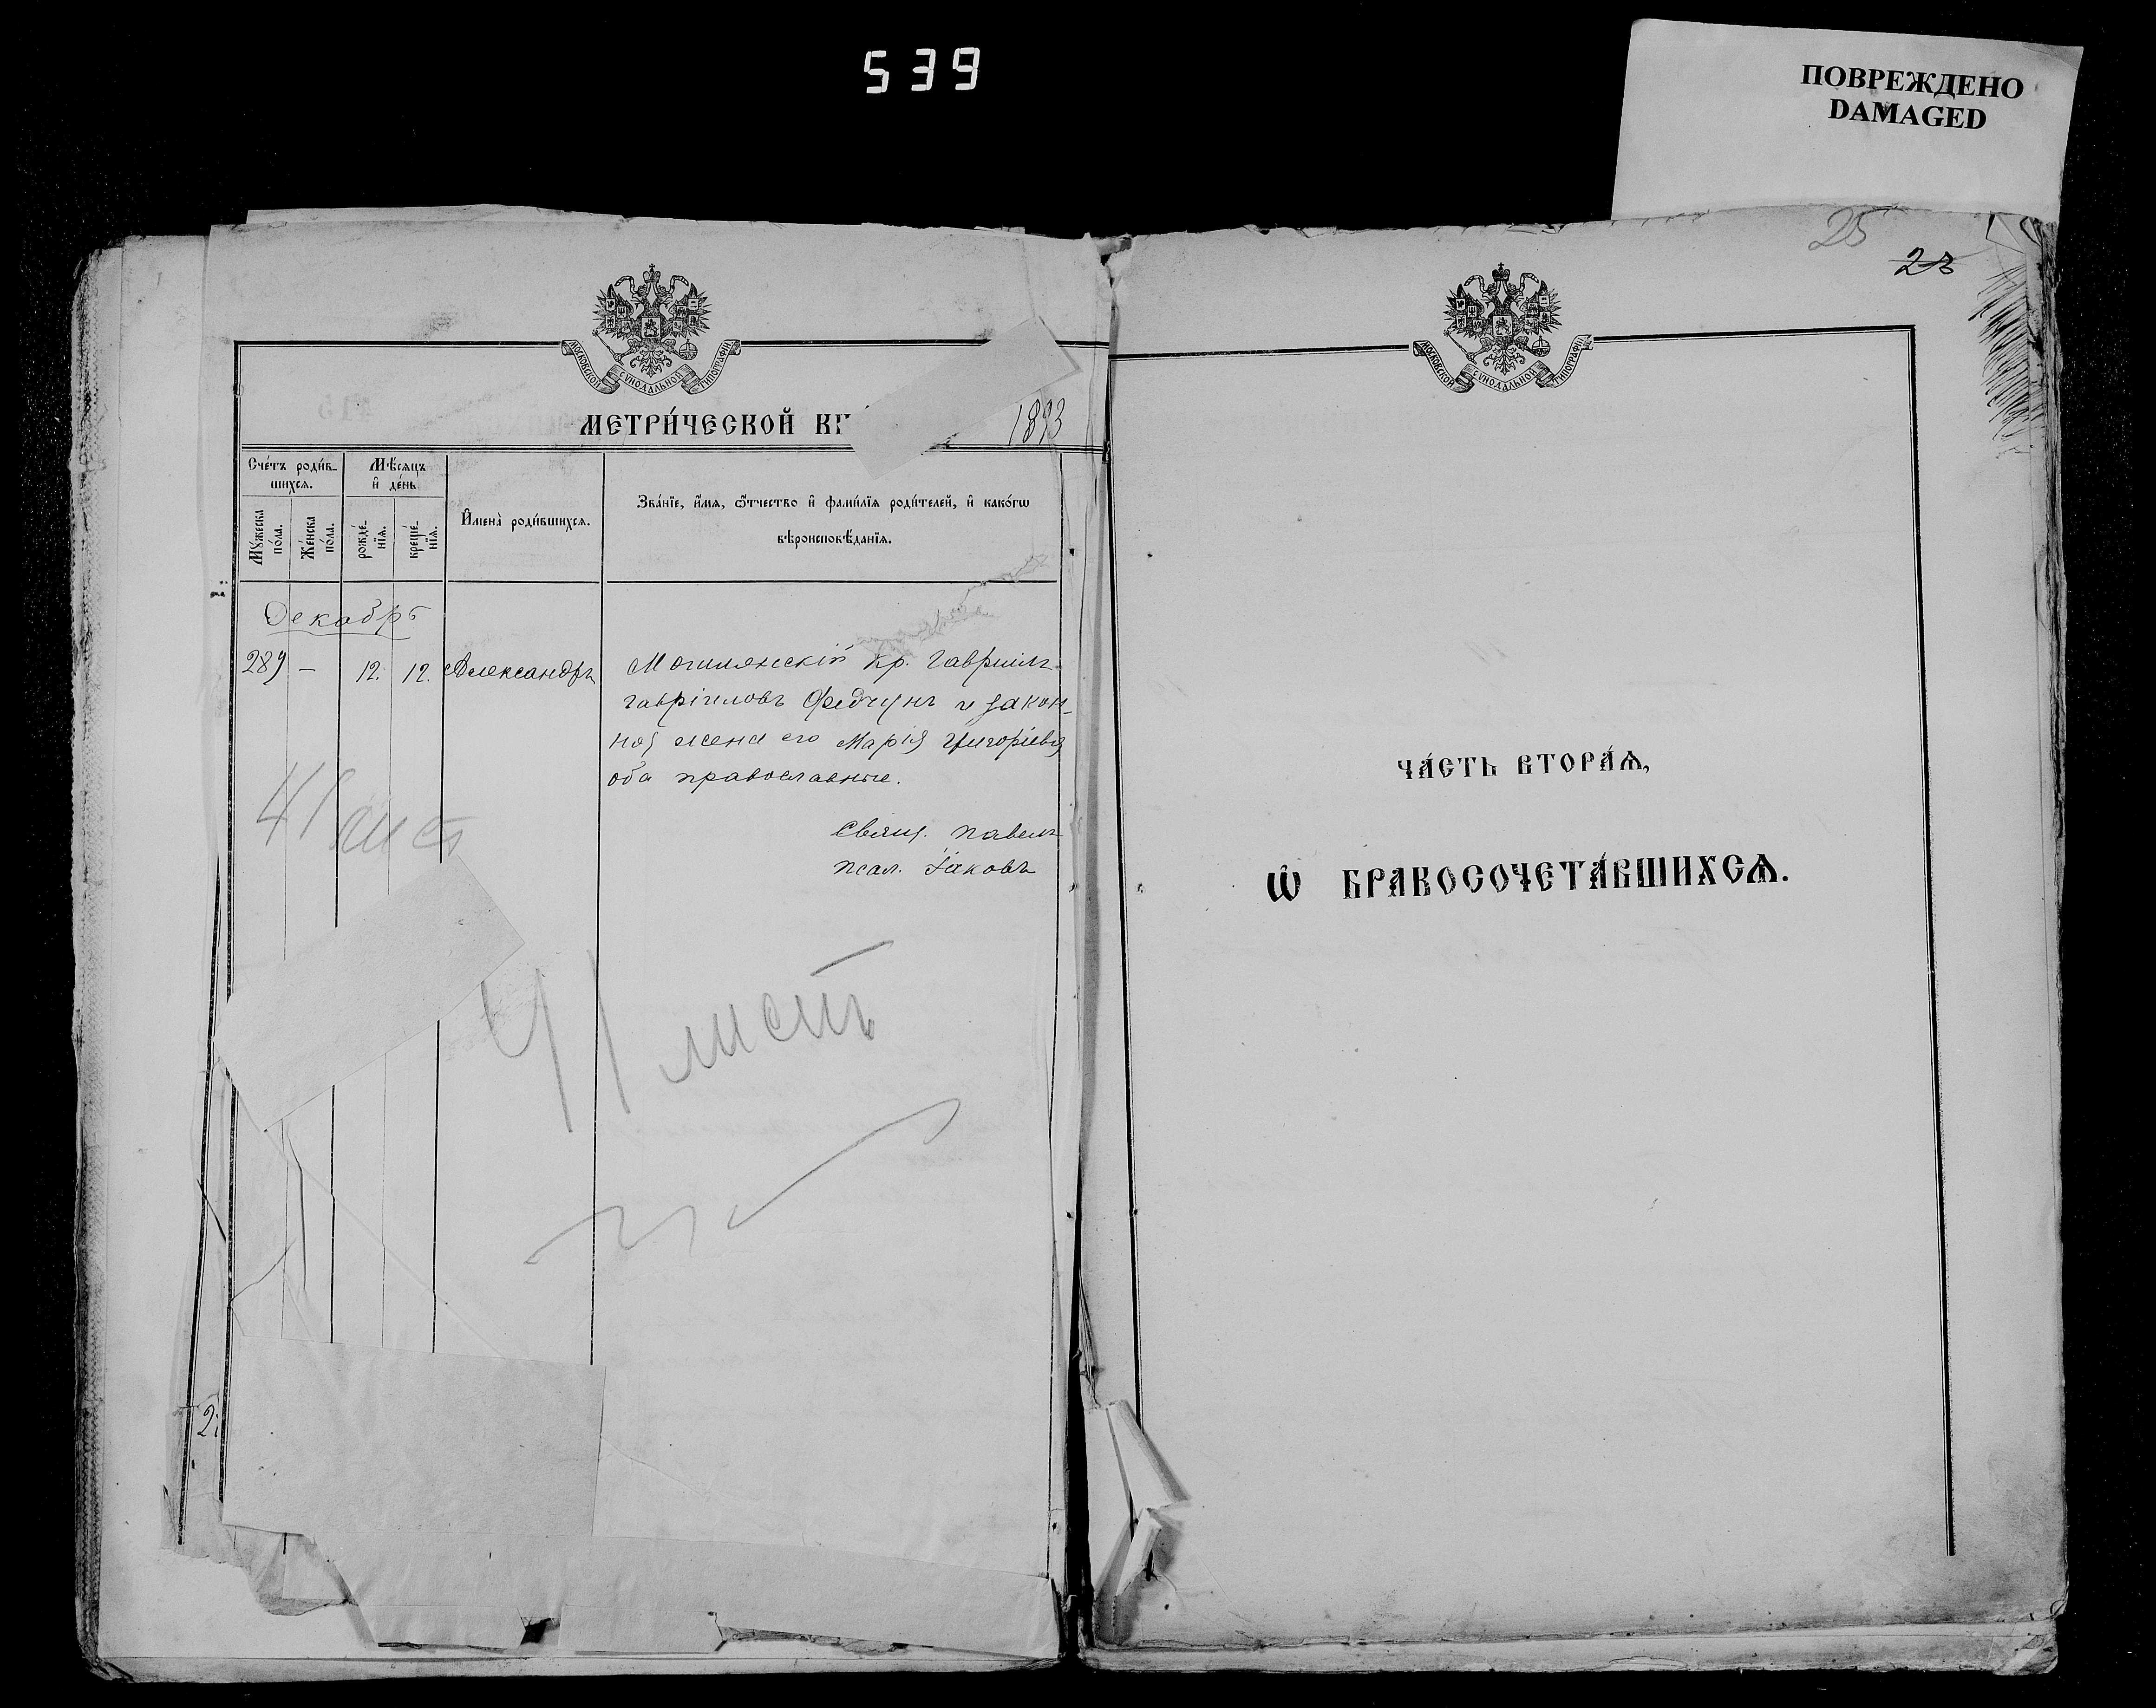 539
ПОВРЕЖДЕНО
DAMAGED
25
23
МОСКОВСКОЙ СѴНОДАЛЬНОЙ ТИПОГРАФІИ
МЕТРИ́ЧЕСКОЙ КН
1893
Сче́тъ роди́в-
шихсѧ.
Мѣ́сѧцъ
и҆ де́нь
Мꙋ́жеска
по́ла.
Же́нска
по́ла.
рожде́-
нїѧ.
креще́-
нїѧ.
И҆мена̀ роди́вшихсѧ.
Зва́нїе, и҆́мѧ, ѻ҆́тчество и҆ фами́лїѧ роди́телей, и҆ како́гѡ
вѣроисповѣ́данїѧ.
Декабрь
289 — 12. 12. Александръ
Могилянскій кр. Гавріилъ
Гавріиловъ Федчунъ и закон-
ная жена его Марія Григоріева
оба православные.
Свящ. Павелъ
Псал. Іаковъ
41 лист
41 листъ
МОСКОВСКОЙ СѴНОДАЛЬНОЙ ТИПОГРАФІИ
ЧА́СТЬ ВТОРА́Ѧ,
Ѡ҆ БРАКОСОЧЕТА́ВШИХСѦ.